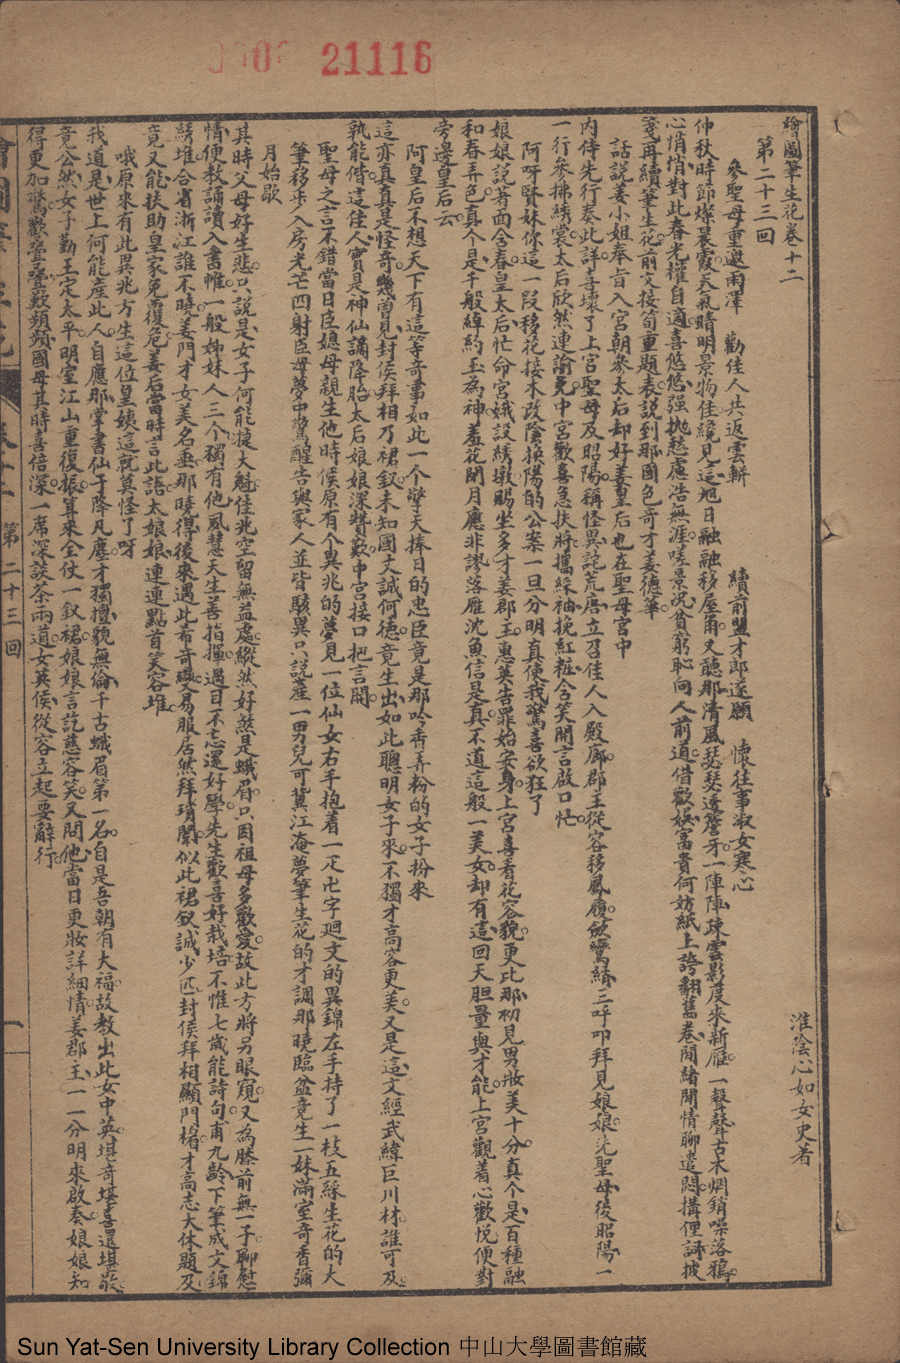 21116
繪圖筆生花卷十二
第二十三回
參聖母重邀雨澤　勸佳人共返雲軿　續前盟才郎遂願　懷往事淑女寒心
淮陰心如女史著
仲秋時節燦晨霞天氣晴明景物佳纔見這旭日融融移屋角又聽那清風瑟瑟透簷牙一陣陣疎雲影度來新雁一聲聲古木烟銷噪落鴉
心悄悄對此春光權自適喜悠悠强拋愁慮浩無涯嗟景况貧窮恥向人前道借歡娛富貴何妨紙上誇翻舊卷閒緒閒情聊遣悶搆俚詞披
箋再續筆生花前文接筍重題表説到那國色奇才姜德華
話説姜小姐奉旨入宮朝參太后却好姜皇后也在聖母宮中
内侍先行奏此詳喜壞了上宮聖母及昭陽稱怪異詫荒唐立召佳人入殿廊郡主從容移鳳履斂鸞綃三呼叩拜見娘娘先聖母後昭陽一
一行參拂綉裳太后欣然連諭免中宮歡喜急扶將攜綵袖挽紅粧含笑開言啟口忙
阿呀賢妹你這一段移花接木改陰換陽的公案一旦分明真使我驚喜欲狂了
娘娘説著面含春皇太后忙命宮娥設綉墩賜坐多才姜郡主惠英告罪始安身上宮喜看花容貌更比那初見男妝美十分真个是百種融
和春弄色真个是千般綽約玉為神羞花閉月應非謬落雁沈魚信是真不道這般一美女却有這回天胆量與才能上宮觀着心歡悦便對
旁邊皇后云
阿皇后不想天下有這等奇事如此一个擎天捧日的忠臣竟是那吟香弄粉的女子扮來
這亦真真是怪奇幾曾見封侯拜相乃裙釵未知國丈誠何德竟生出如此聰明女子來不獨才高容更美又是這文經武緯巨川材誰可及
孰能偕這佳人實是神仙謫降胎太后娘娘深贊歎中宮接口把言開
聖母之言不錯當日臣媳母親生他時侯原有个異兆的夢見一位仙女右手抱着一疋卍字廻文的異錦左手持了一枝五綵生花的大
筆移步入房光芒四射臣母夢中驚醒告與家人並皆駭異只説產一男兒可冀江淹夢筆生花的才調那曉臨盆竟生一妹滿室奇香彌
月始歇
其時父母好生悲只説是女子何能捷大魁佳兆空留無益處縱然好煞是蛾眉只因祖母多歡愛故此方將另眼窺又為膝前無一子聊慰
情便教誦讀入書帷一般姊妹人三个獨有他夙慧天生善指揮過目不忘還好學先生歡喜好栽培不惟七歲能詩句甫九齡下筆成文錦
綉堆合省浙江誰不曉姜門才女美名垂那曉得後來遇此希奇變易服居然拜瑣闈似此裙釵誠少匹封侯拜相顯門楣才高志大休題及
竟又能扶助皇家免覆危姜后當時言此語太娘娘連連點首笑容堆
哦原來有此異兆方生這位皇姨這就莫怪了呀
我道是世上何能產此人自應那掌書仙子降凡塵才獨擅貌無倫千古蛾眉第一名自是吾朝有大福故教出此女中英堪奇堪喜還堪敬
竟公然女子勤王定太平明室江山重復振算來全仗一釵裙娘娘言訖慈容笑又問他當日更妝詳細情姜郡主一一分明來啟奏娘娘知
得更加驚歎疊疊歎頻頻國母其時喜倍深一席深談茶兩道女英侯從容立起要辭行
第二十三回
一
Sun Yat-Sen University Library Collection 中山大學圖書館藏